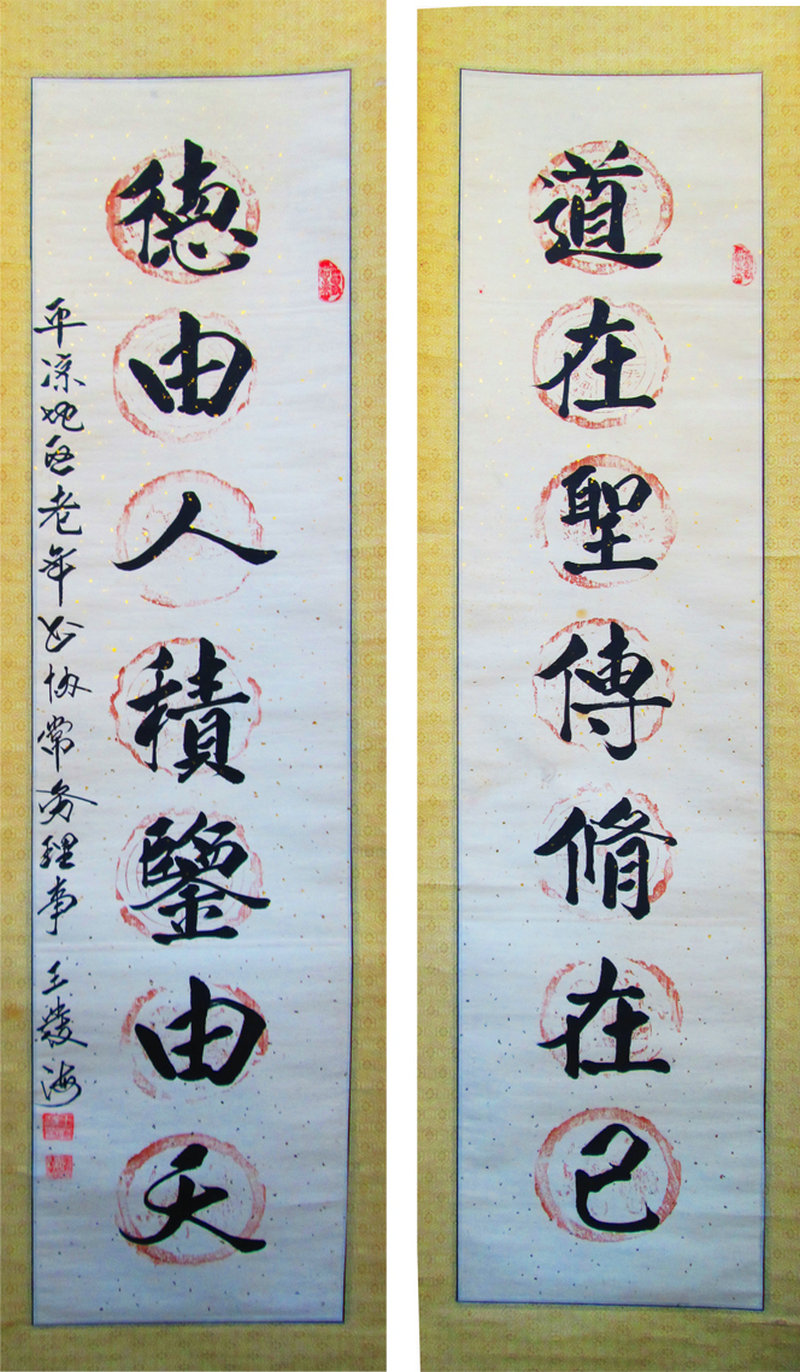 道在聖傳脩在己
德由人積鑒由天
平凉地区老年书协常务理事 王發海